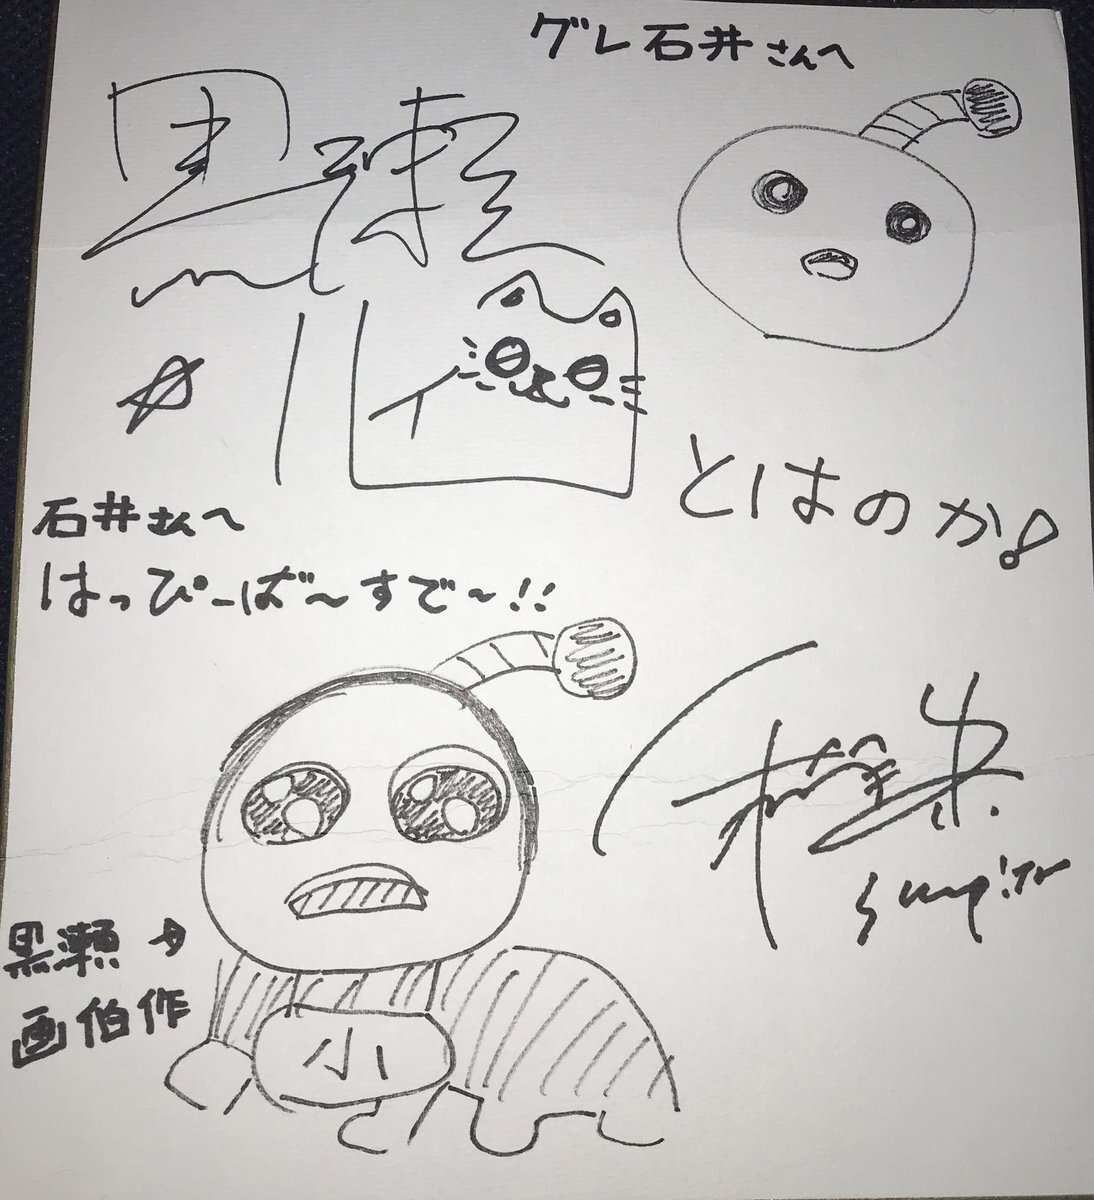 グレ石井さんへ
黒瀬
石井さんへ
はっぴーば〜すで〜!!
とはのか!
黒瀬
画伯作
小